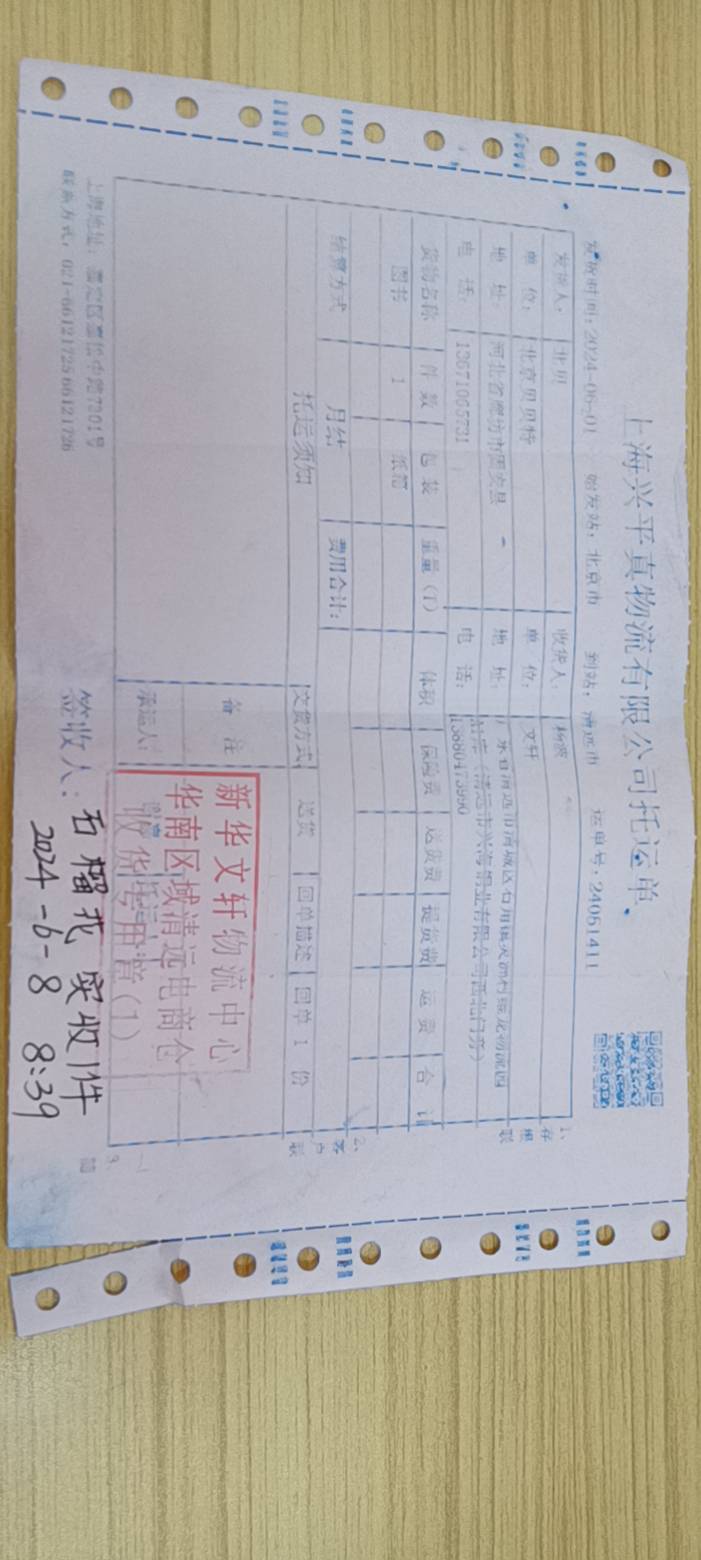 上海兴平真物流有限公司托运单
发货时间：2024-06-01 始发站：北京市 到站：清远市 运单号：24051411
发货人： 北贝 收货人： 杨波
单 位： 北京贝贝特 单 位： 文轩
地 址： 河北省廊坊市固安县 地 址： 广东省清远市清城区石角镇灵洲村骏龙物流园
A1库（清远市兴海铜业有限公司西北门旁）
电 话： 13671065731 电 话： 13880473990
货物名称 件 数 包 装 重量（T） 体积 保险费 送货费 提货费 运 费 合 计
图书 1 纸箱
结算方式 月结 费用合计：
托运须知 交货方式 送货 回单描述 回单 1 份
备 注
承运人：
新华文轩物流中心
华南区域清远电商仓
收货专用章(1)
上海地址：嘉定区嘉松中路7301号
联系方式：021-66121725 66121726
签收人：石榴花 实收1件
2024-6-8 8:39
1、
存
根
联
2、
客
户
联
3、